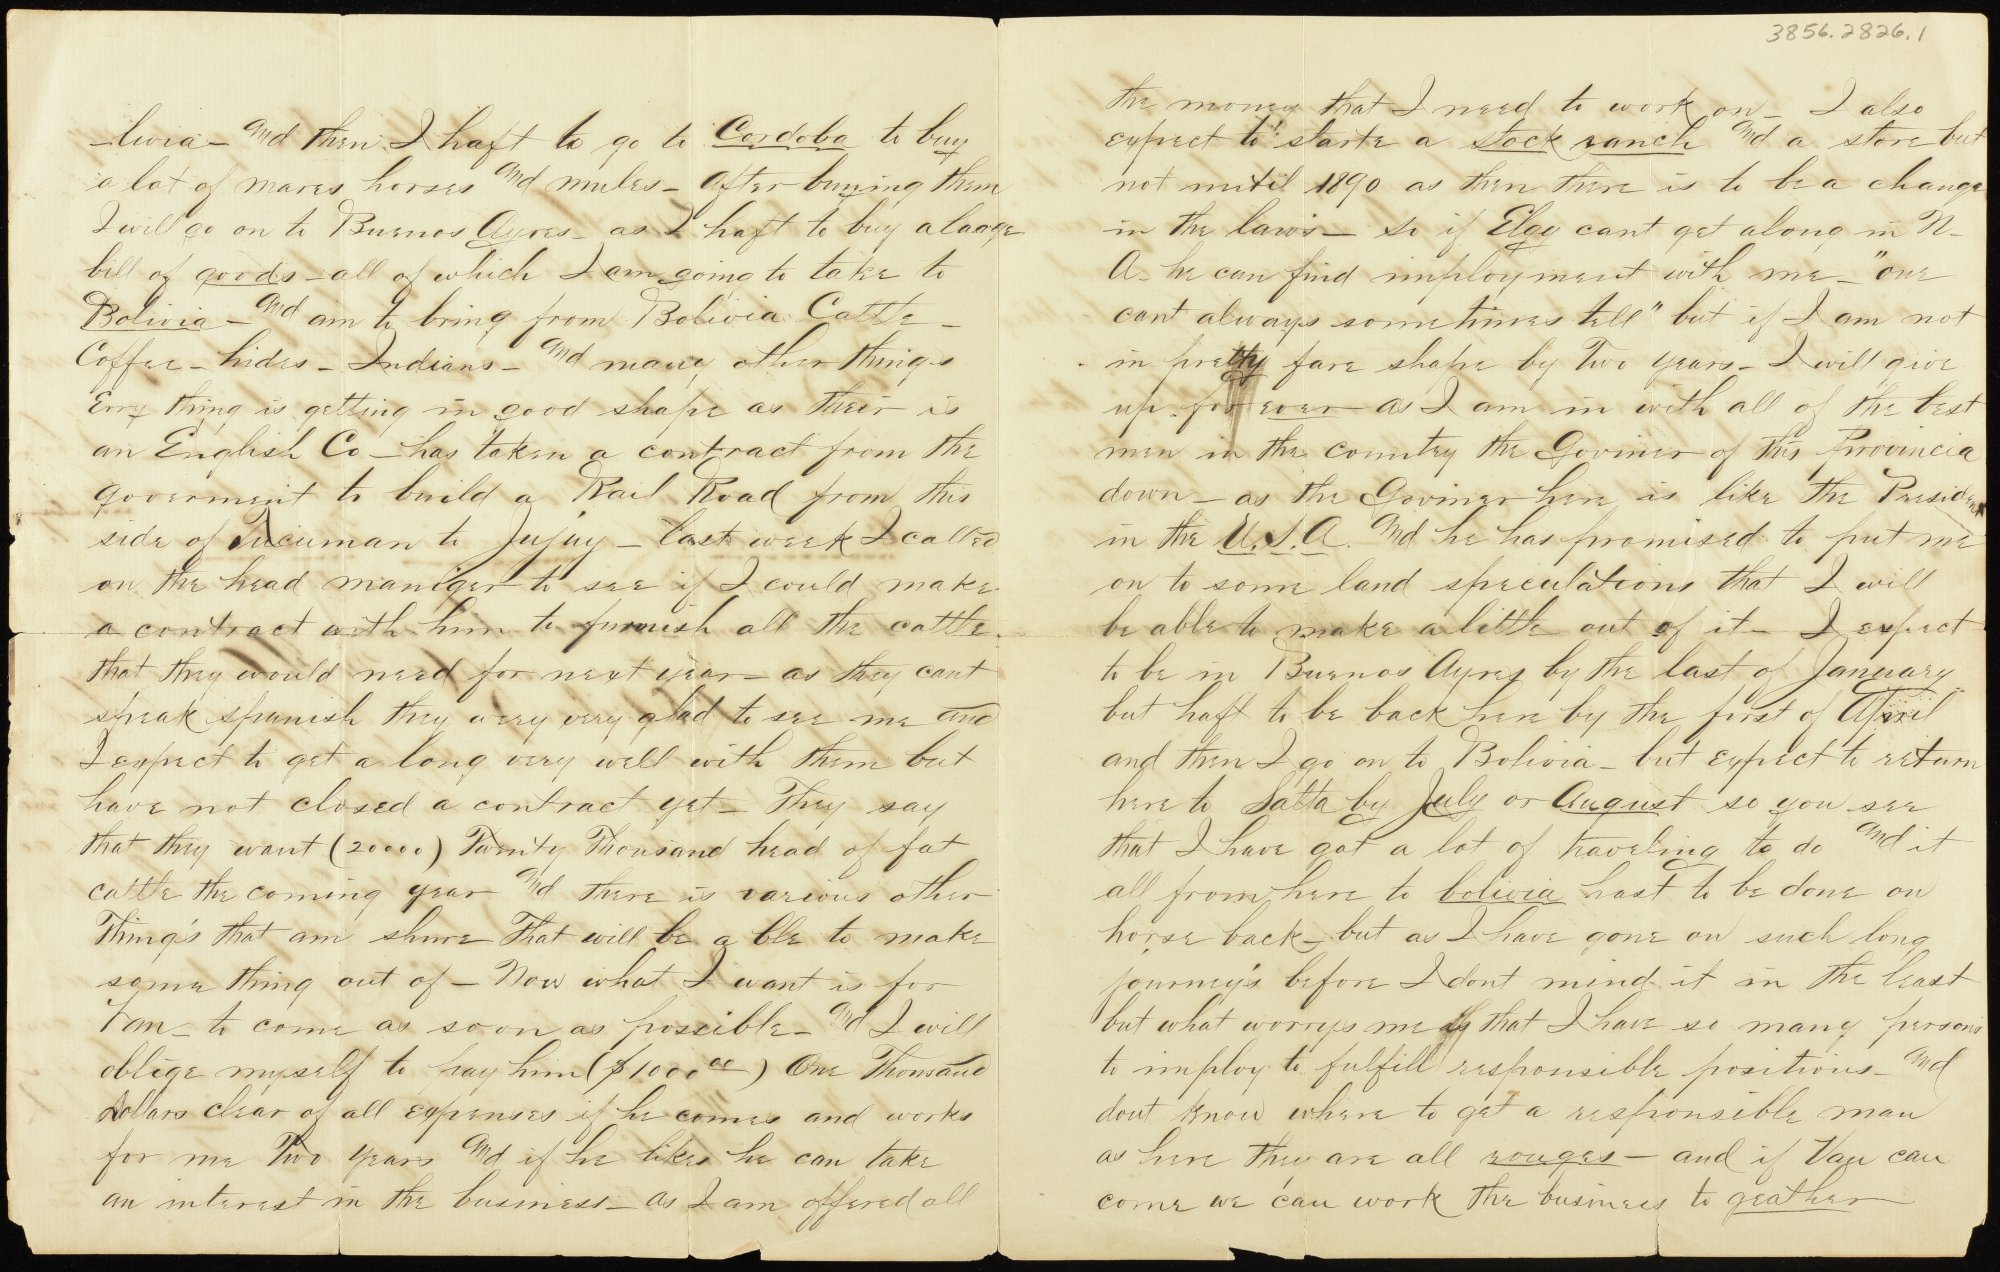 -livia - and then I haft to go to Cordoba to buy
a lot of mares horses and mules - after buying them
I will go on to Buenos Ayres - as I haft to buy a laage
bill of goods - all of which I am going to take to
Bolivia - and am to bring from Bolivia Cattle -
Coffee - hides - Indians - and many other things
Erry thing is getting in good shape as their is
an English Co - has taken a contract from the
goverment to build a Rail Road from this
side of Tucuman to Jujuy - last week I called
on the head maniger to see if I could make
a contract with him to furnish all the cattle
that they would need for next year - as they cant
speak spanish they wery very glad to see me and
I expect to get a long very well with them but
have not closed a contract yet - They say
that they want (20000) Twenty Thousand head of fat
cattle the coming year and there is various other
Thing's that am shure That will be a ble to make
some thing out of - Now what I want is for
Van - to come as soon as possible - and I will
oblige myself to pay him ($1000 00) One Thousand
dollars clear of all expenses if he comes and works
for me Two Years and if he likes he can take
an interest in the business - as I am offered all
3856.2826.1
the money that I need to work on - I also
expect to starte a stock ranch and a store but
not until 1890 as then there is to be a change
in the laws - so if Elgy cant get along in N-
A- he can find imployment with me - "one
cant always some times tell" but if I am not
in pretty fare shape by Two years - I will give
up for ever - as I am in with all of the best
men in the country the Goviner of this Provincia
down - as the Goviner here is like the President
in the U.S.A. and he has promised to put me
on to some land speculations that I will
be able to make a little out of it - I expect
to be in Buenos Ayres by the last of January
but haft to be back here by the first of April
and then I go on to Bolivia - but expect to return
here to Salta by July or August so you see
that I have got a lot of traveling to do and it
all from here to bolivia hast to be done on
horse back - but as I have gone on such long
journey's before I dont mind it in the least
but what worrys me is that I have so many persons
to imploy to fulfill responsible positions - and
dont know where to get a responsible man
as here they are all rouges - and if Van can
come we can work the business to geather